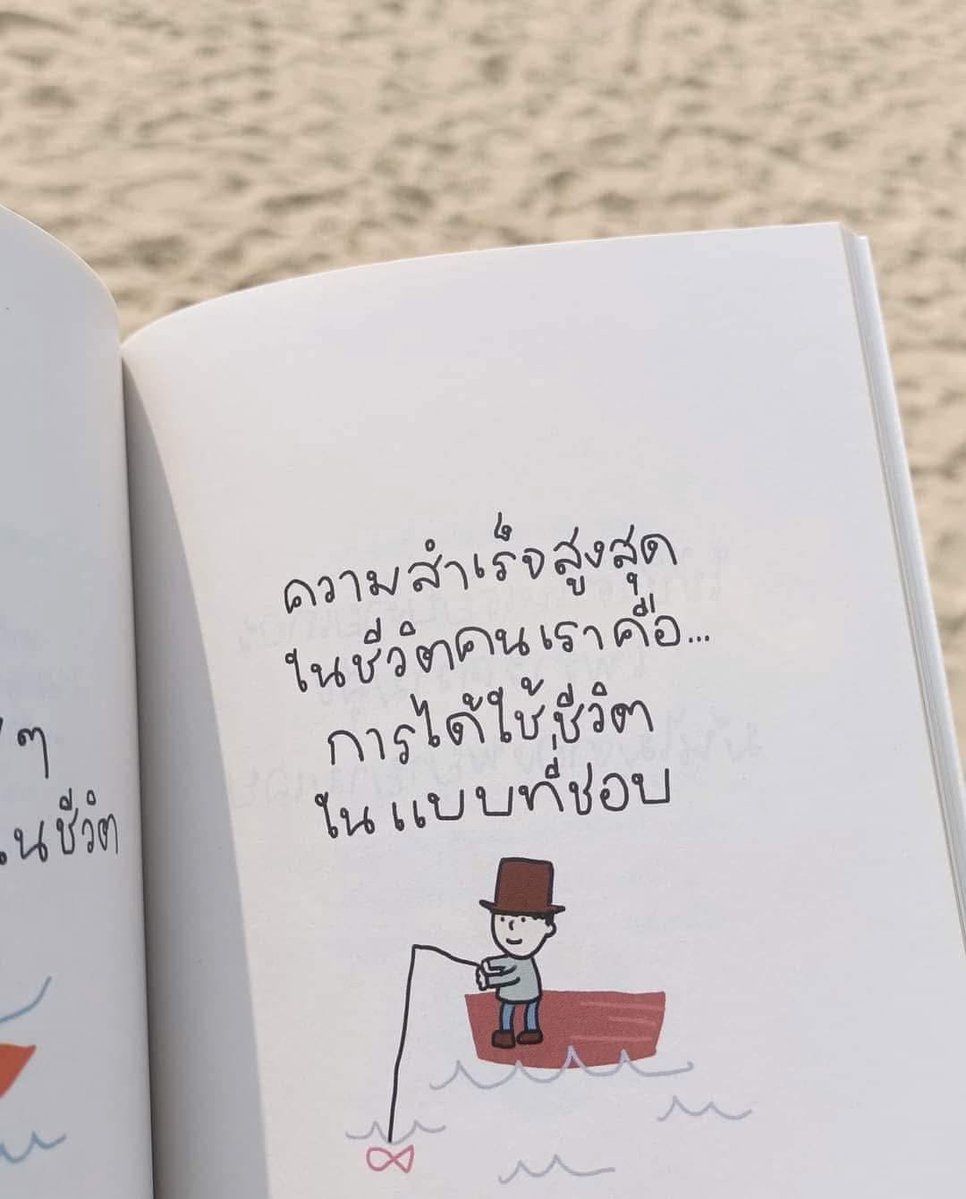 ๆ
ในชีวิต
ความสำเร็จสูงสุด
ในชีวิตคนเราคือ...
การได้ใช้ชีวิต
ในแบบที่ชอบ